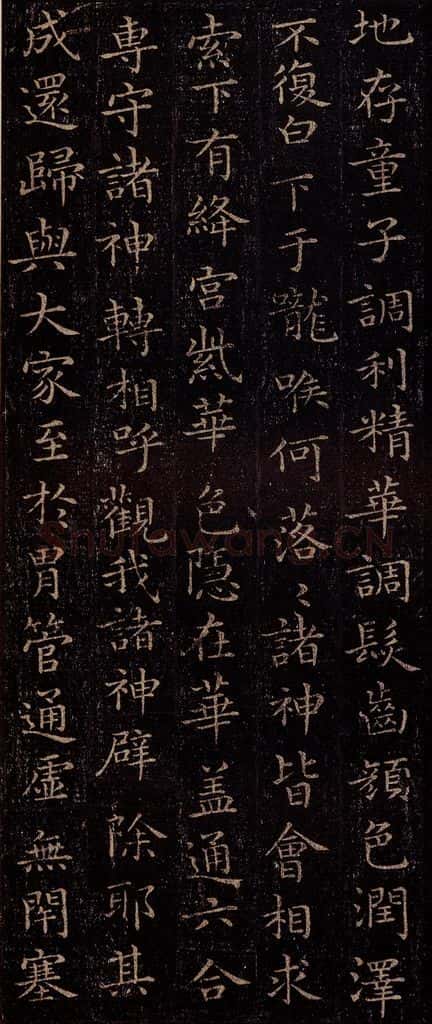 地存童子調利精華調髮齒顏色潤澤
不復白下于嚨喉何落〻諸神皆會相求
索下有絳宮紫華色隱在華盖通六合
専守諸神轉相呼觀我諸神辟除耶其
成還歸與大家至於胃管通虛無閇塞
Shufawang.CN